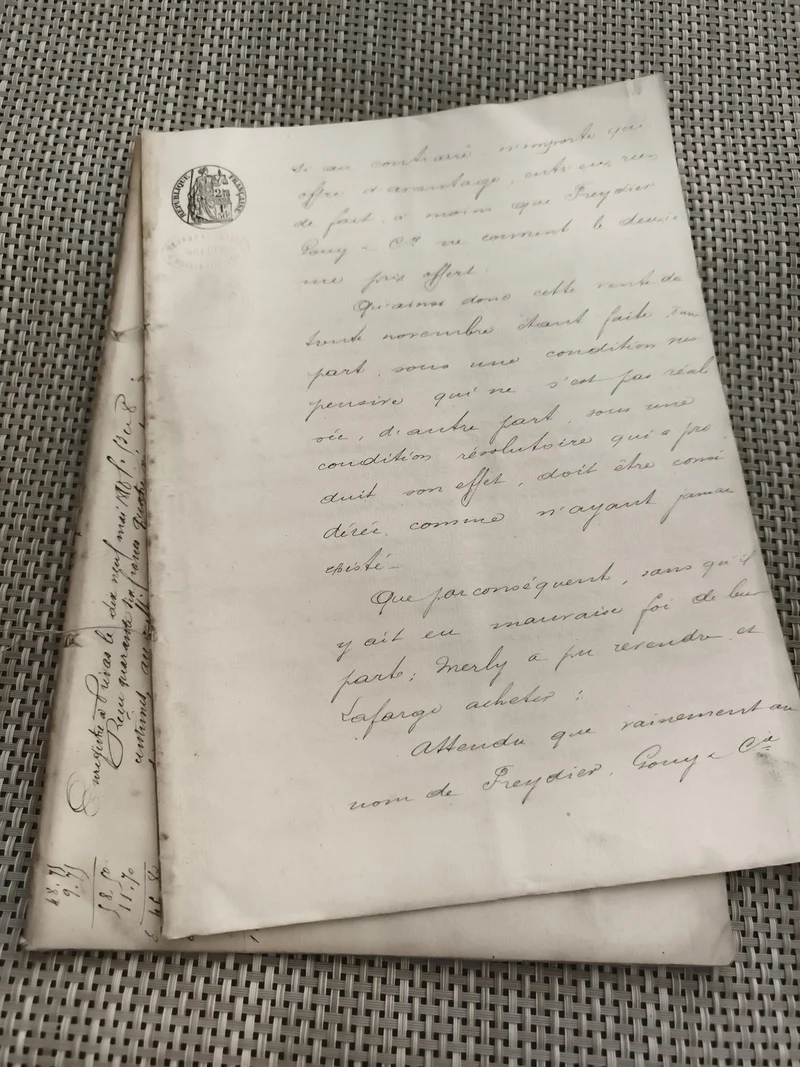 RÉPUBLIQUE FRANÇAISE
si au contraire n'importe qui
offre d'avantage, cest eux, rien
de fait, à moins que Freydier
Gouy & Cie ne couvrent le dernier
prix offert.
Qu'ainsi donc cette vente du
trente novembre étant faite d'une
part, sous une condition sus
pensive qui ne s'est pas réali
sée, d'autre part, sous une
condition résolutoire qui a pro
duit son effet, doit être consi
dérée comme n'ayant jamais
existé-
Que parconséquent, sans qu'il
y ait eu mauvaise foi de leur
part; Merly a pu revendre et
Lafarge acheter;
Attendu que vainement au
nom de Freydier, Gouy & Cie
Enregistré à Privas le dix neuf mai
Reçu quarante six francs quatre
centimes
48.75
9.75
58.50
11.70